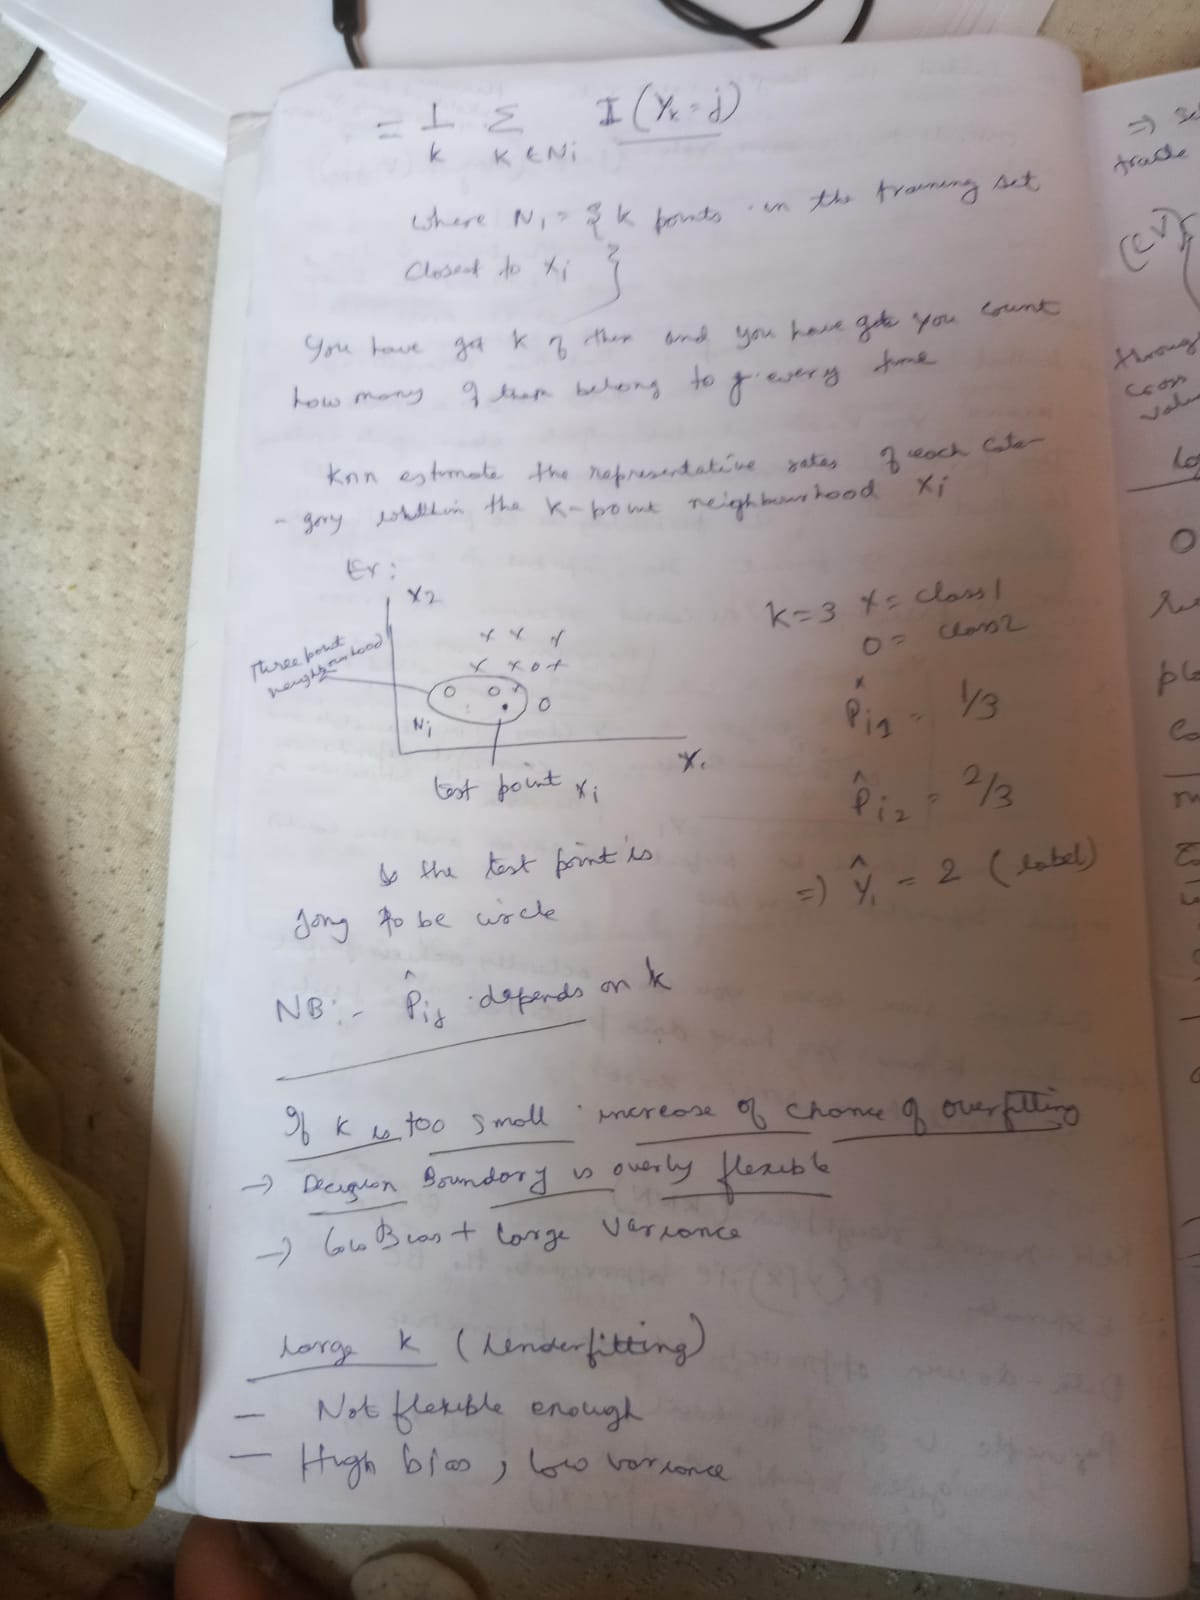 = 1/k Σ K ∈ Ni I(Yk = j)
where Ni = { k points in the training set
closest to xi }
You have got k of them and you have got you count
how many of them belong to j every time
Knn estimate the representative rates of each cate-
- gory within the k-point neighbourhood xi
Ex:
X2
Three point
neighbourhood
x x x
x x o x
o o x
o
Ni
X1
test point xi
K=3 x = class 1
o = class 2
P̂i1 = 1/3
P̂i2 = 2/3
=) Ŷi = 2 (label)
the test point is
going to be circle
NB:- P̂ij depends on k
If k is too small increase of chance of overfitting
→ Decision Boundary is overly flexible
→ low Bias + large variance
large k (Underfitting)
— Not flexible enough
— High bias, low variance
=)
trade
(CV)
cross